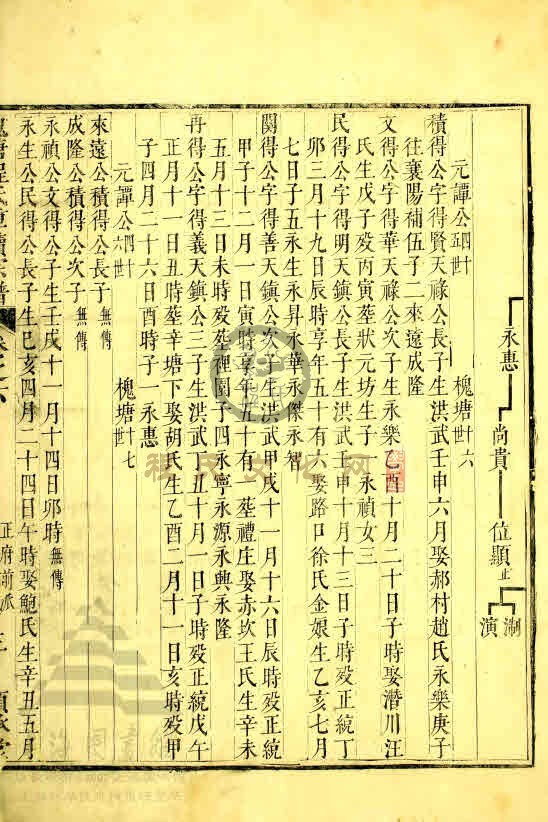 永惠 尚貴 位顯止 澗
演
元譚公四五世 槐塘廿六世
積得公字得賢天祿公長子生洪武壬申六月娶郝村趙氏永樂庚子
往襄陽補伍子二來遠成隆
文得公字得華天祿公次子生永樂乙酉十月二十日子時娶潛川汪
氏生戊子歿丙寅塟狀元坊生子一永禎女三
民得公字得明天鎮公長子生洪武壬申十月十三日子時歿正統丁
卯三月十九日辰時享年五十有六娶路口徐氏金娘生乙亥七月
七日子五永生永昇永華永傑永智
關得公字得善天鎮公次子生洪武甲戌十一月十六日辰時歿正統
甲子十二月一日寅時享年五十有 塟禮庄娶赤坎王氏生辛未
五月十三日未時歿塟 園子四永寧永源永興永隆
再得公字得義天鎮公三子生洪武丁丑十月一日子時歿正統戊午
正月十一日丑時塟辛塘下娶胡氏生乙酉二月十一日亥時歿甲
子四月二十六日酉時子一永惠
元譚公四六世 槐塘十七世
來遠公積得公長子無傳
成隆公積得公次子無傳
永禎公文得公子生壬戌十一月十四日卯時無傳
永生公民得公長子生己亥四月二十四日午時娶鮑氏生辛丑五月
正府前派
程氏文化网